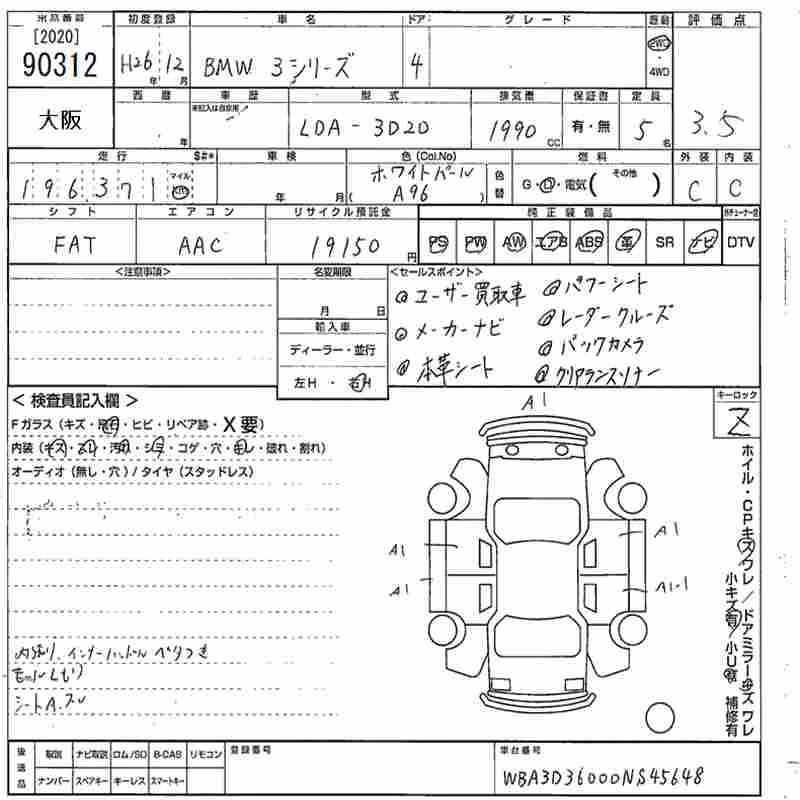 出品番号 初度登録 車名 ドア グレード 駆動 評価点
[2020]
90312 H26年 12月 BMW 3シリーズ 4 2WD・4WD
大阪 西暦 年 車歴 未記入は自家用 型式 排気量 保証書 定員
LDA-3D20 1990cc 有・無 5名 3.5
走行 S#* 車検 色(Col.No) 燃料 外装 内装
196,371 マイル Km 年 月 ホワイトパール (A96) 色替 G・D・電気(その他) C C
シフト エアコン リサイクル預託金 純正装備品
FAT AAC 19150円 PS PW AW エアB ABS 革 SR ナビ DTV
<注意事項> 名変期限 <セールスポイント>
月 日
輸入車
ディーラー・並行
左H・右H
◎ユーザー買取車 ◎パワーシート
◎メーカーナビ ◎レーダークルーズ
◎本革シート ◎バックカメラ
◎クリアランスソナー
キーロック
Z
<検査員記入欄>
Fガラス(キズ・飛石・ヒビ・リペア跡・X要)
内装(キズ・スレ・汚れ・シミ・コゲ・穴・モレ・破れ・割れ)
オーディオ(無し・穴)/タイヤ(スタッドレス)
A1
A1 A1
A1 A1-1
ホイル・CPキズワレ/ドアミラーキズワレ
小キズ有/小U有 補修有
内張り、インナーハンドル ベタつき
モールくもり
シートA.スレ
後送品 取説 ナビ取説 ロム/SD B-CAS リモコン 登録番号 車台番号
ナンバー スペアキー キーレス スマートキー WBA3D36000NS45648